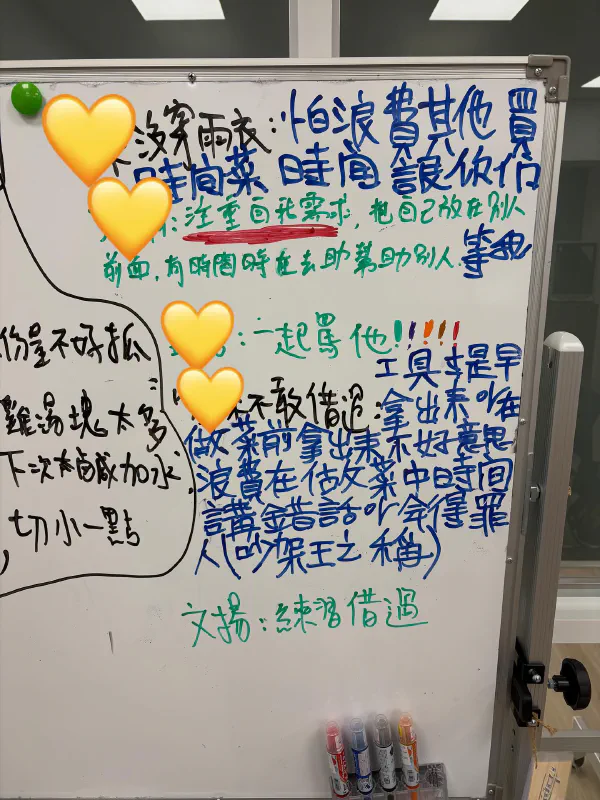 沒穿雨衣:怕浪費其他買
時間菜 時間 讓你們
等我
注重自我需求,把自己放在別人
前面,有時間時在去助幫助別人.
:一起罵他!!!!!!
份量不好抓
雞湯塊太多
下次太鹹加水
切小一點
不敢借過:
工具等提早
拿出來
做菜前拿出來 不好意思
浪費在做菜中時間
講錯話 會得罪
人(吵架王之稱)
文揚:練習借過